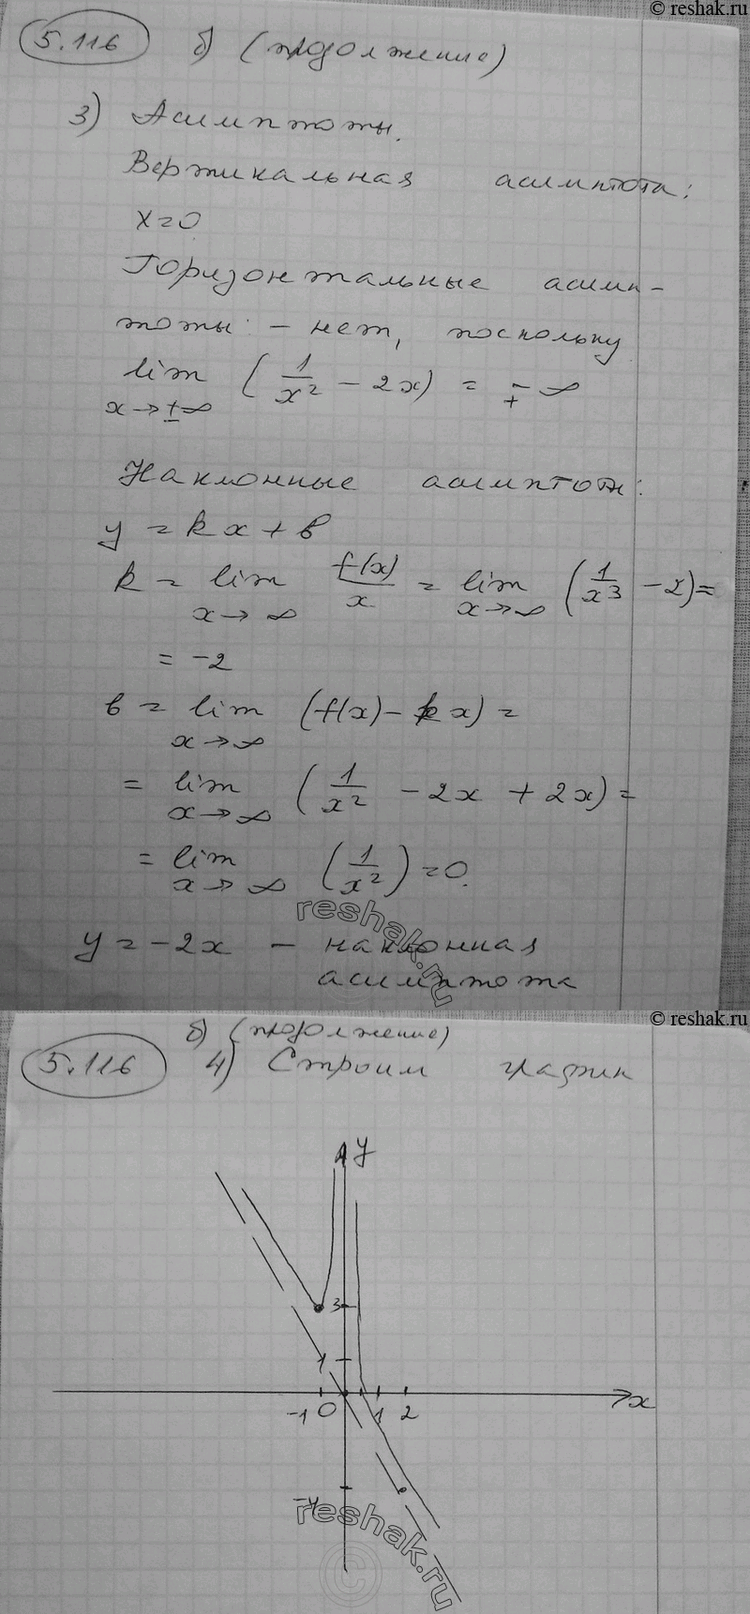 © reshak.ru
5.116 б) (продолжение)
3) Асимптоты.
Вертикальная асимптота:
x=0
Горизонтальные асимп-
тоты: – нет, поскольку
lim x→±∞ (1/x² − 2x) = ∓∞
Наклонные асимптоты:
y = kx + b
k = lim x→∞ f(x)/x = lim x→∞ (1/x³ − 2) =
= −2
b = lim x→∞ (f(x) − kx) =
= lim x→∞ (1/x² − 2x + 2x) =
= lim x→∞ (1/x²) = 0.
reshak.ru
y = −2x – наклонная
асимптота
© reshak.ru
б) (продолжение)
5.116 4) Строим график
y
3
1
-1 0 1 2 x
-4
reshak.ru
©